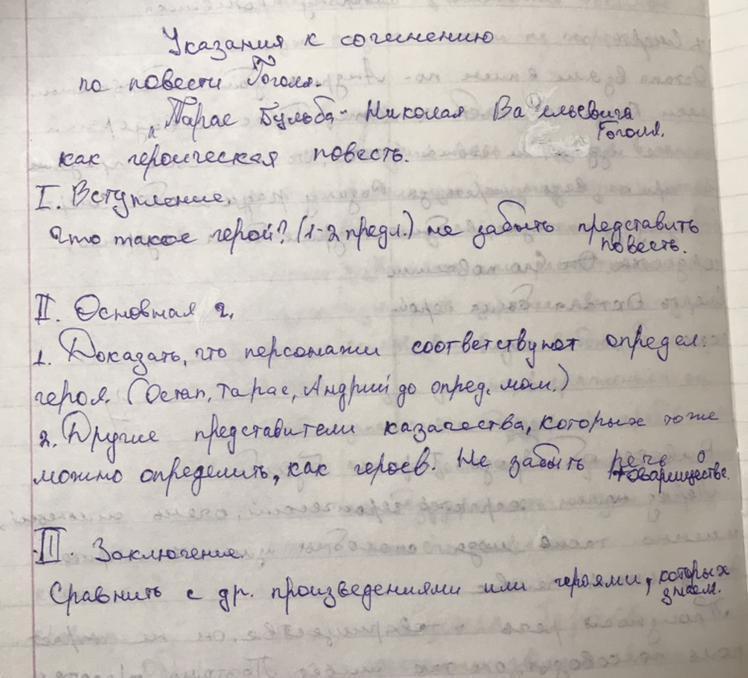 Указания к сочинению
по повести Гоголя.
„Тарас Бульба" Николая Васильевича Гоголя.
как героическая повесть.
I. Вступление.
Что такое герой? (1-2 предл.) не забыть представить повесть.
II. Основная ч.
1. Доказать, что персонажи соответствуют определ.
героя. (Остап, Тарас, Андрий до опред. мом.)
2. Другие представители казачества, которых тоже
можно определить, как героев. Не забыть речь о товариществе.
III. Заключение.
Сравнить с др. произведениями или героями, которых знаем.